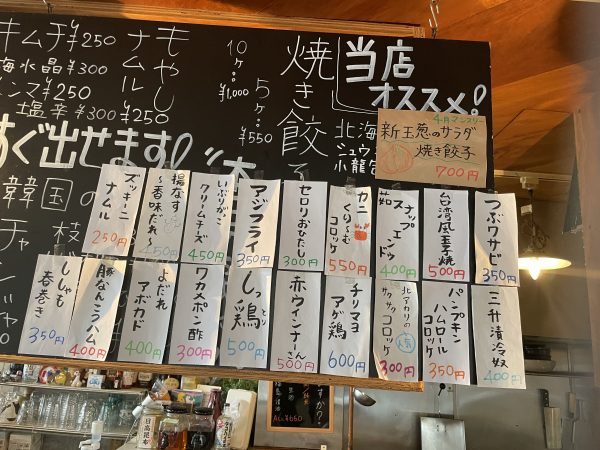 当店
オススメ!
4月マンスリー
新玉葱のサラダ
焼き餃子
700円
焼き餃子
10ヶ…
¥1,000
5ヶ…
¥550
もやし
ナムル
¥250
キムチ¥250
海水晶¥300
メンマ¥250
塩辛¥300
すぐ出せます!
韓国の
北海
ジュウ
小籠包
つぶワサビ
350円
台湾風玉子焼
500円
スナップ
エンドウ
400円
カニ
くりーむ
コロッケ
550円
セロリおひたし
300円
アジフライ
350円
いぶりがっこ
クリームチーズ
450円
揚なす
〜香味だれ〜
450円
ズッキーニ
ナムル
250円
三升漬冷奴
400円
パンプキン
ハムロール
コロッケ
350円
北アカリの
サクサクコロッケ
300円
チリマヨ
アゲ鶏
600円
赤ウインナーさん
500円
しっとり鶏
500円
ワカメポン酢
300円
よだれ
アボカド
400円
豚なんこつハム
400円
ししゃも
春巻き
350円
日高昆布
¥650